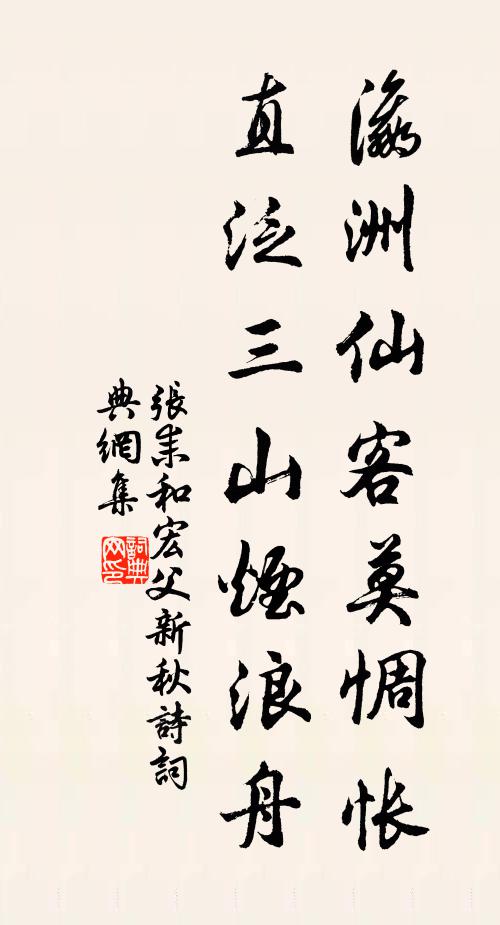 瀛洲仙客莫惆怅
直泛三山煙浪舟
張耒和宏父新秋詩詞
典網集
詞典網印